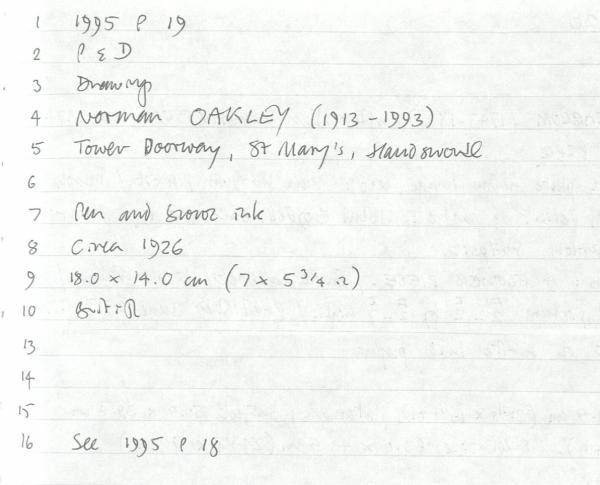 1 1995 P 19
2 P & D
3 Drawings
4 Norman OAKLEY (1913-1993)
5 Tower Doorway, St Mary's, Handsworth
6
7 Pen and brown ink
8 Circa 1926
9 18.0 x 14.0 cm (7 x 5 3/4 in)
10 British
13
14
15
16 See 1995 P 18